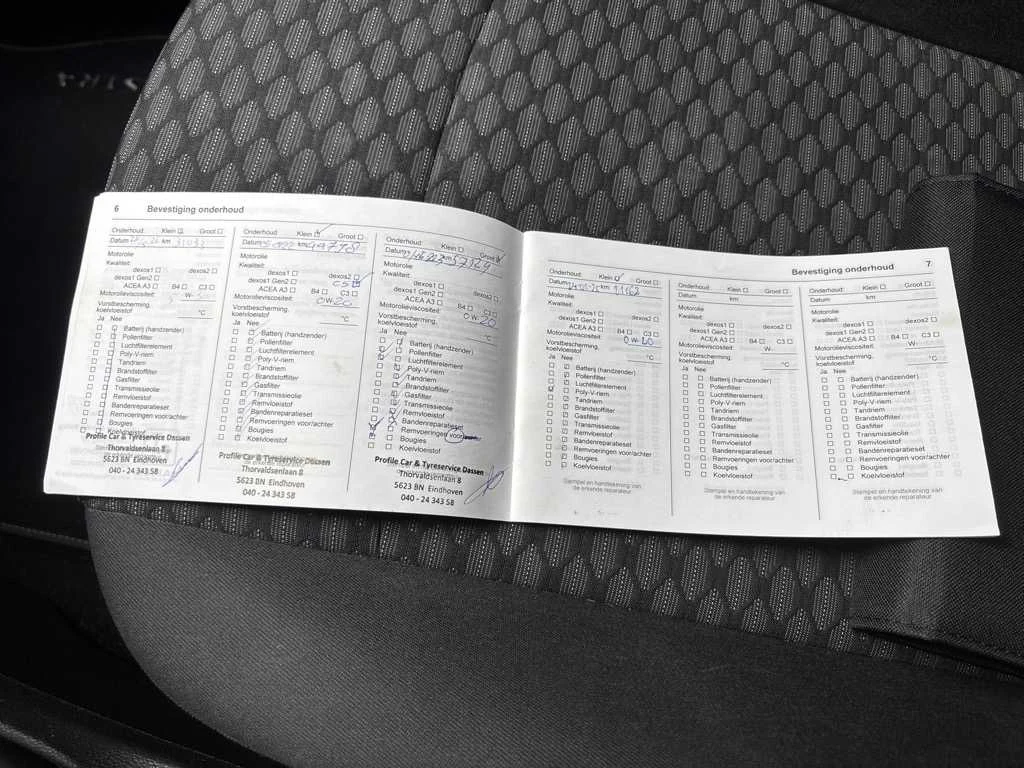 6 Bevestiging onderhoud
Onderhoud: Klein Groot
Datum km
Motorolie
Kwaliteit:
dexos1 dexos2
dexos1 Gen2
ACEA A3 B4 C3
Motorolieviscositeit: -W-
Vorstbescherming, koelvloeistof °C
Ja Nee
Batterij (handzender)
Pollenfilter
Luchtfilterelement
Poly-V-riem
Tandriem
Brandstoffilter
Gasfilter
Transmissieolie
Remvloeistof
Bandenreparatieset
Remvoeringen voor/achter
Bougies
Koelvloeistof
Profile Car & Tyreservice Dassen
Thorvaldsenlaan 8
5623 BN Eindhoven
040 - 24 343 58
Onderhoud: Klein Groot
Datum km 49718
Motorolie
Kwaliteit:
dexos1 dexos2
dexos1 Gen2 C5
ACEA A3 B4 C3
Motorolieviscositeit: 0 W 20
Vorstbescherming, koelvloeistof °C
Ja Nee
Batterij (handzender)
Pollenfilter
Luchtfilterelement
Poly-V-riem
Tandriem
Brandstoffilter
Gasfilter
Transmissieolie
Remvloeistof
Bandenreparatieset
Remvoeringen voor/achter
Bougies
Koelvloeistof
Profile Car & Tyreservice Dassen
Thorvaldsenlaan 8
5623 BN Eindhoven
040 - 24 343 58
Onderhoud: Klein Groot
Datum km 57329
Motorolie
Kwaliteit:
dexos1 dexos2
dexos1 Gen2
ACEA A3 B4 C3
Motorolieviscositeit: 0 W 20
Vorstbescherming, koelvloeistof °C
Ja Nee
Batterij (handzender)
Pollenfilter
Luchtfilterelement
Poly-V-riem
Tandriem
Brandstoffilter
Gasfilter
Transmissieolie
Remvloeistof
Bandenreparatieset
Remvoeringen
Bougies
Koelvloeistof
Profile Car & Tyreservice Dassen
Thorvaldsenlaan 8
5623 BN Eindhoven
040 - 24 343 58
Bevestiging onderhoud 7
Onderhoud: Klein Groot
Datum km
Motorolie
Kwaliteit:
dexos1 dexos2
dexos1 Gen2
ACEA A3 B4 C3
Motorolieviscositeit: 0 W
Vorstbescherming, koelvloeistof °C
Ja Nee
Batterij (handzender)
Pollenfilter
Luchtfilterelement
Poly-V-riem
Tandriem
Brandstoffilter
Gasfilter
Transmissieolie
Remvloeistof
Bandenreparatieset
Remvoeringen voor/achter
Bougies
Koelvloeistof
Stempel en handtekening van
de erkende reparateur
Onderhoud: Klein Groot
Datum km
Motorolie
Kwaliteit:
dexos1 dexos2
dexos1 Gen2
ACEA A3 B4 C3
Motorolieviscositeit: W
Vorstbescherming, koelvloeistof °C
Ja Nee
Batterij (handzender)
Pollenfilter
Luchtfilterelement
Poly-V-riem
Tandriem
Brandstoffilter
Gasfilter
Transmissieolie
Remvloeistof
Bandenreparatieset
Remvoeringen voor/achter
Bougies
Koelvloeistof
Stempel en handtekening van
de erkende reparateur
Onderhoud: Klein Groot
Datum km
Motorolie
Kwaliteit:
dexos1 dexos2
dexos1 Gen2
ACEA A3 B4 C3
Motorolieviscositeit: W
Vorstbescherming, koelvloeistof °C
Ja Nee
Batterij (handzender)
Pollenfilter
Luchtfilterelement
Poly-V-riem
Tandriem
Brandstoffilter
Gasfilter
Transmissieolie
Remvloeistof
Bandenreparatieset
Remvoeringen voor/achter
Bougies
Koelvloeistof
Stempel en handtekening van
de erkende reparateur